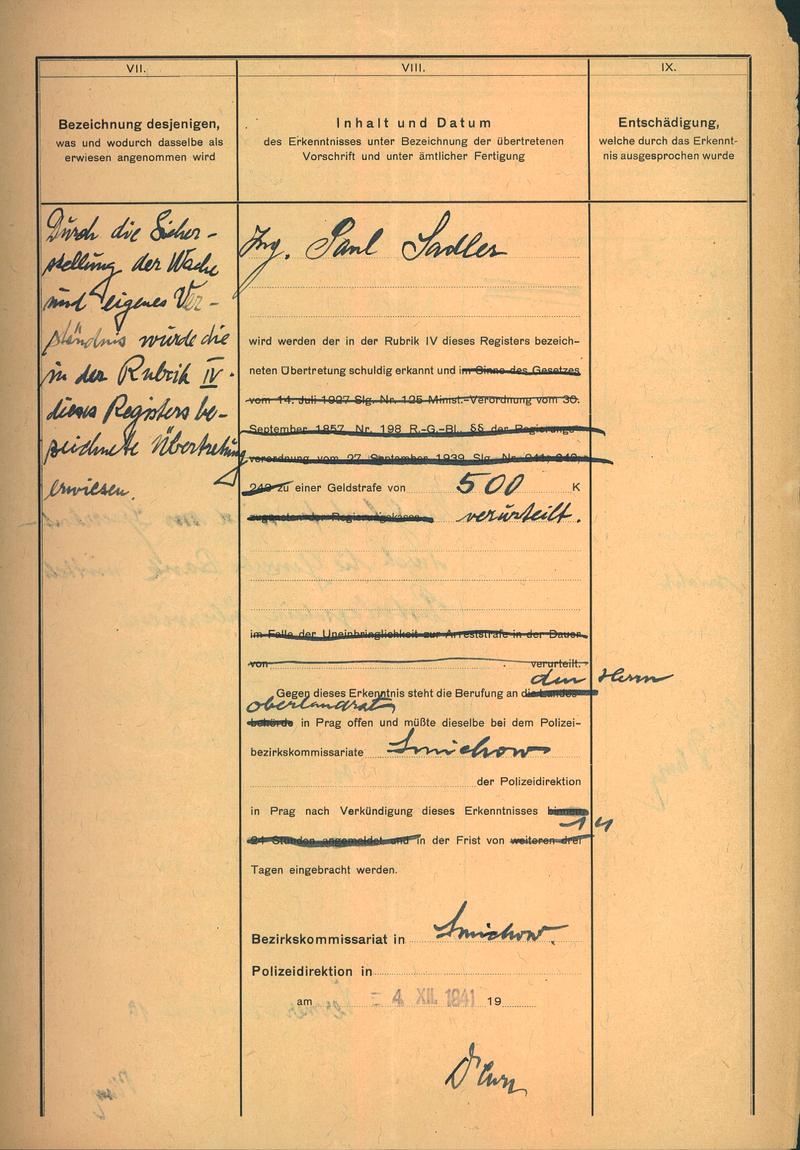 VII.
Bezeichnung desjenigen,
was und wodurch dasselbe als
erwiesen angenommen wird
Durch die Sicher-
stellung der Wache
und eigenes Ver-
ständnis wurde die
in der Rubrik IV.
dieses Registers be-
zeichnete Übertretung
erwiesen.
VIII.
Inhalt und Datum
des Erkenntnisses unter Bezeichnung der übertretenen
Vorschrift und unter ämtlicher Fertigung
Ing. Paul Sadler
wird werden der in der Rubrik IV dieses Registers bezeich-
neten Übertretung schuldig erkannt und im Sinne des Gesetzes
vom 14. Juli 1927 Slg. Nr. 125 Minist.-Verordnung vom 30.
September 1857, Nr. 198 R.-G.-Bl., §§ der Regierungs-
verordnung vom 27. September 1939 Slg. Nr.
zu einer Geldstrafe von 500 K
verurteilt.
im Falle der Uneinbringlichkeit zur Arreststrafe in der Dauer
von verurteilt.
den Herrn
Gegen dieses Erkenntnis steht die Berufung an die Landes-
Oberlandrat
behörde in Prag offen und müßte dieselbe bei dem Polizei-
bezirkskommissariate Smichow
der Polizeidirektion
in Prag nach Verkündigung dieses Erkenntnisses binnen
14
24 Stunden angemeldet und in der Frist von weiteren drei
Tagen eingebracht werden.
Bezirkskommissariat in Smichow.
Polizeidirektion in
am - 4. XII. 1941 19
IX.
Entschädigung,
welche durch das Erkennt-
nis ausgesprochen wurde